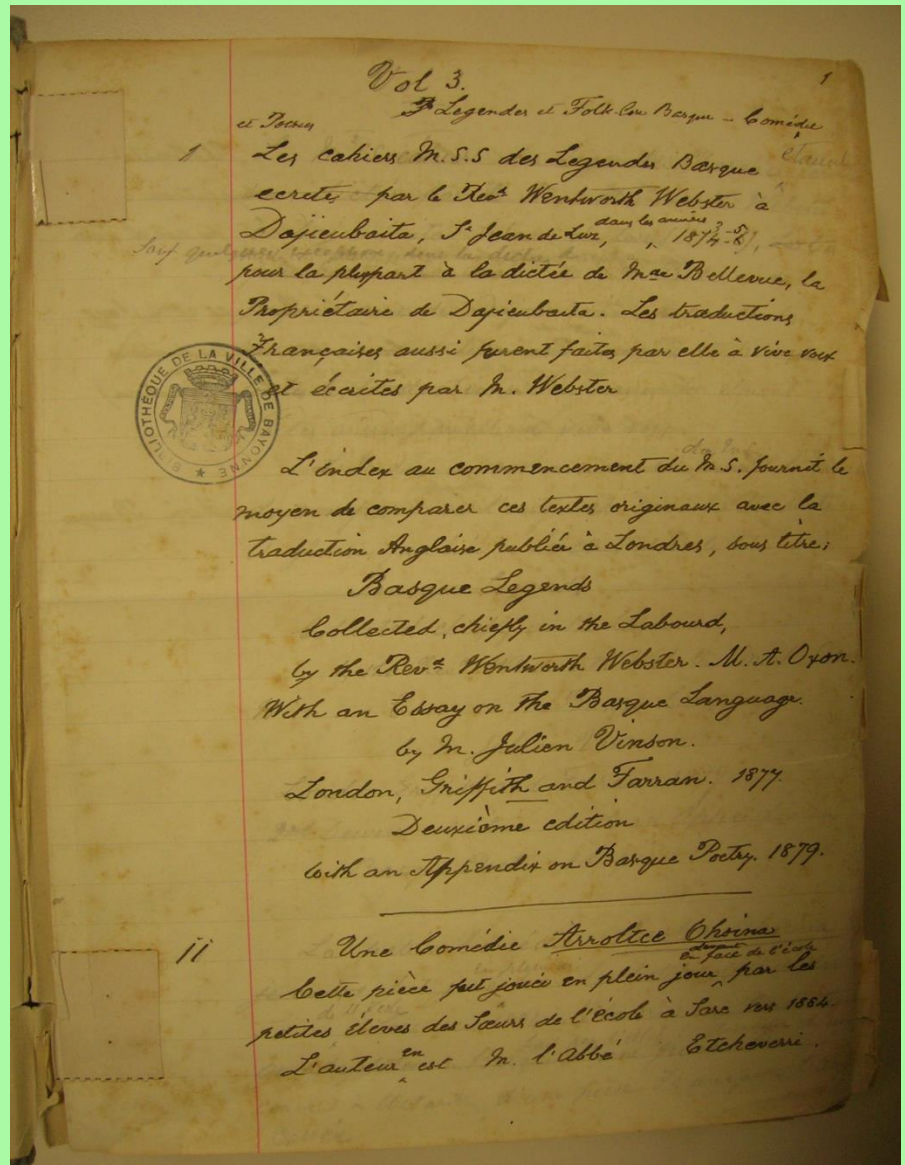 Vol 3.
1
Legendes et Folk-lore Basque – Comédie
et Poésies
1
Les cahiers M.S.S des Legendes Basque
étaient
ecrite par le Revd Wentworth Webster à
Dajieubaita, St Jean de Luz, dans les années, 187
Sauf quelques
pour la pluspart à la dictée de Mme Bellevue, la
Propriétaire de Dajieubaita. Les traductions
Françaises aussi furent faites par elle à vive voix
et écrites par M. Webster
BIBLIOTHÈQUE DE LA VILLE DE BAYONNE
L'index au commencement du M.S. fournit le
moyen de comparer ces textes originaux avec la
traduction Anglaise publiée à Londres, sous titre:
Basque Legends
Collected, chiefly in the Labourd,
by the Revd Wentworth Webster. M. A. Oxon.
With an Essay on the Basque Language.
by M. Julien Vinson.
London, Griffith and Farran. 1877.
Deuxième edition
with an Appendix on Basque Poetry. 1879.
ii
Une Comédie Arroltce Choina
devant
en face de l'école
Cette pièce fut jouée en plein jour par les
petites élèves des Sœurs de l'école à Sare vers 1884.
L'auteur en est M. l'Abbé Etcheverri.